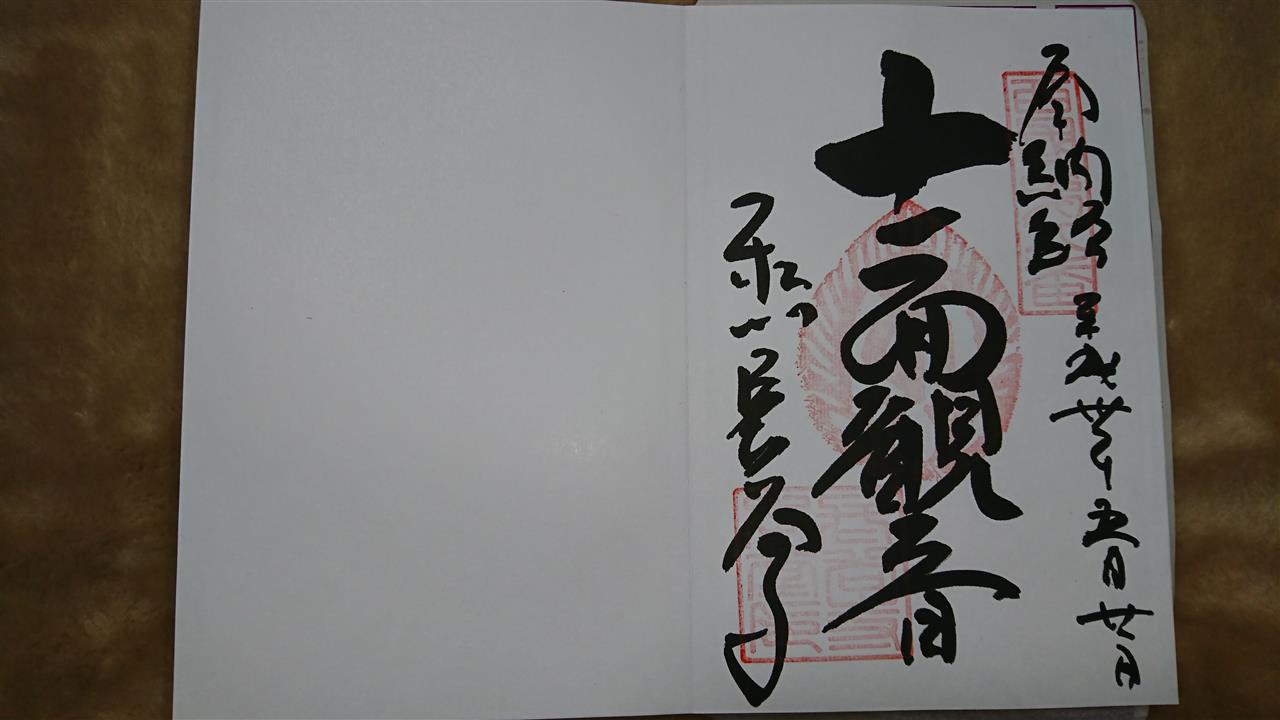 奉納経 平成卅年五月廿日
十一面観音
和州長谷寺